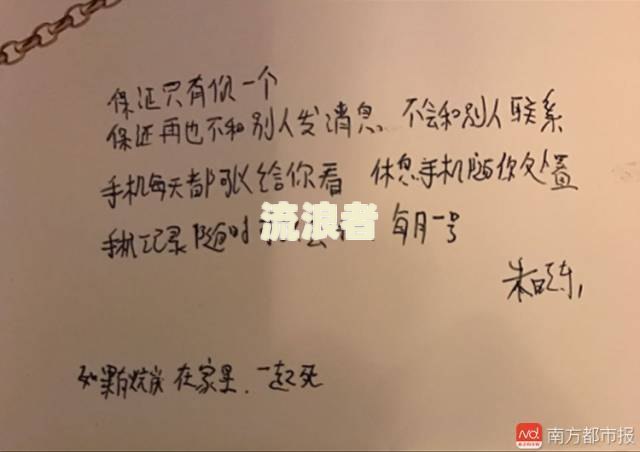 保证只有你一个
保证再也不和别人发消息 不会和别人联系
手机每天都可以给你看 休息手机随你处置
流浪者
手机记录随时 每月一号
朱晓东
如果有 在家里，一起死
南方都市报